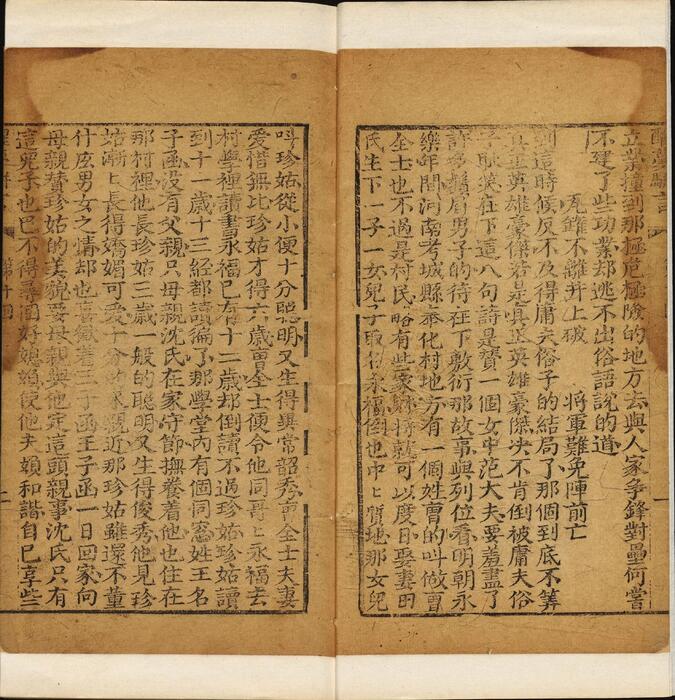 立業撞到那極危極險的地方去與人家爭鋒對壘何嘗
不建了些功業却逃不出俗語說的道
瓦鑵不離井上破　將軍難免陣前亡
到這時候反不及得庸夫俗子的結局了那個到底不筭
真正英雄豪傑若是眞正英雄豪傑决不肯倒被庸夫俗
子耻笑在下這八句詩是贊一個女中范大夫要羞盡了
許多鬚眉男子的待在下敷衍那故事與列位看明朝永
樂年間河南考城縣奉化村地方有一個姓曹的叫做曹
全士也不過是村民略有些家將就可以度日娶妻田
氏生下一子一女兒子取名永福倒也中中質地那女兒
叫珍姑從小便十分聰明又生得異常韶秀曹全士夫妻
愛惜無比珍姑才得六歲曹全士便令他同哥哥永福去
村學裡讀書永福已有十二歲却倒讀不過珍姑珍姑讀
到十一歲十三經都讀徧了那學堂內有個同窓姓王名
子函沒有父親只母親沈氏在家守節撫養着他也住在
那村裡他長珍姑三歲一般的聰明又生得俊秀他見珍
姑漸漸長得嬌媚可愛十分的來親近那珍姑雖還不董
什庅男女之情却也喜歡着王子函王子函一日回家向
母親贊珍姑的美貌要母親與他定這頭親事沈氏只有
這兒子也巴不得尋個好媳婦使他夫婦和諧自已享些
第十回
一
二